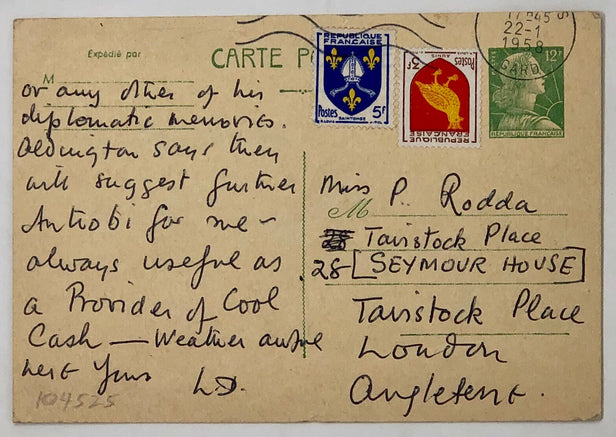 Expédié par
CARTE
M
or any other of his
diplomatic memories.
Aldington says they
will suggest further
Antrobi for me -
always useful as
a Provider of Cool
Cash - Weather awful
here Yours
L.D.
104525
RÉPUBLIQUE
FRANÇAISE
Postes 5F
SAINTONGE
Postes
3F
AUNIS
REPUBLIQUE
FRANÇAISE
22-1
1958
GARD
12F
RÉPUBLIQUE FRANÇAISE
Miss P. Rodda
M
28 Tavistock Place
28 [SEYMOUR HOUSE]
Tavistock Place
London
Angleterre.